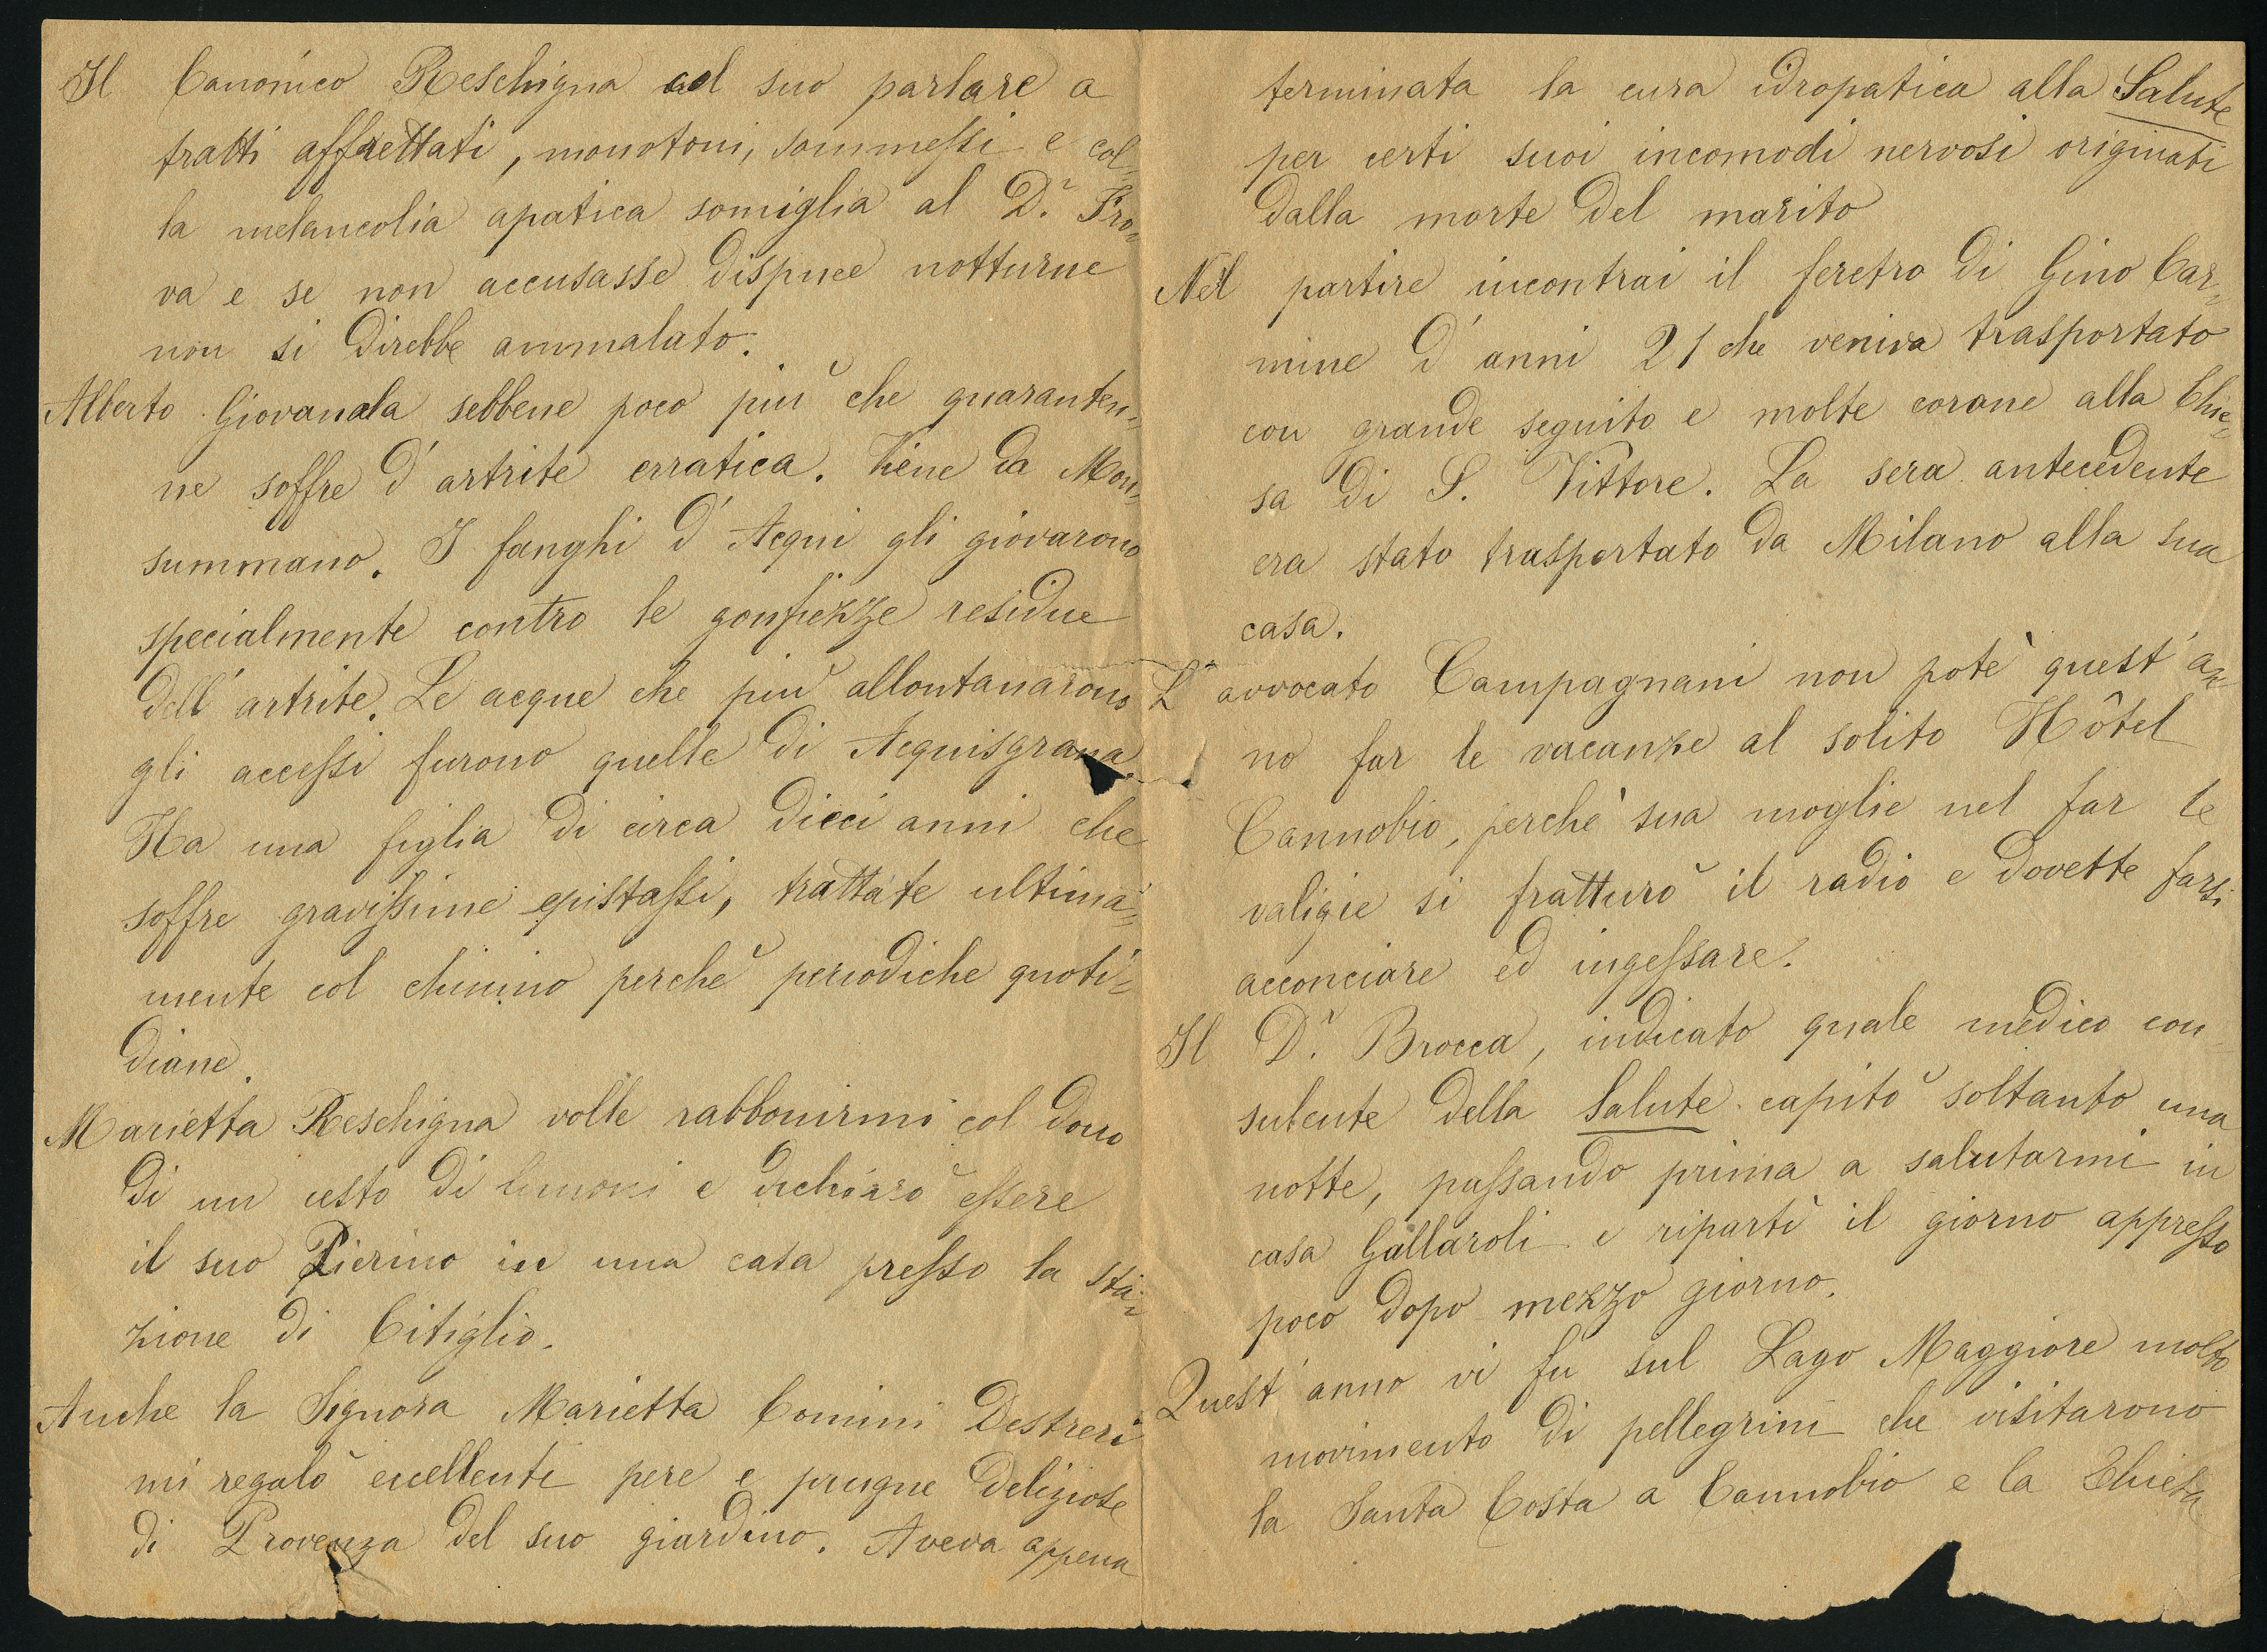 Il Canonico Reschigna col suo parlare a
tratti affrettati, monotoni, sommessi e col-
la melancolia apatica somiglia al Dr. Pro-
va e se non accusasse dispnee notturne
non si direbbe ammalato.
Alberto Giovanola sebbene poco più che quaranten-
ne soffre d'artrite erratica. Viene da Mon-
summano. I fanghi d'Acqui gli giovarono
specialmente contro le gonfiezze residue
dell'artrite. Le acque che più allontanarono
gli accessi furono quelle di Acquisgrana.
Ha una figlia di circa dieci anni che
soffre gravissime epistassi, trattate ultima-
mente col chinino perchè periodiche quoti-
diane.
Marietta Reschigna volle rabbonirmi col dono
di un cesto di limoni e dichiarò essere
il suo Pierino in una casa presso la sta-
zione di Citiglio.
Anche la Signora Marietta Comini Destreri
mi regalò eccellenti pere e prugne deliziose
di Provenza del suo giardino. Aveva appena
terminata la cura idropatica alla Salute
per certi suoi incomodi nervosi originati
dalla morte del marito
Nel partire incontrai il feretro di Gino Car-
mine d'anni 21 che veniva trasportato
con grande seguito e molte corone alla Chie-
sa di S. Vittore. La sera antecedente
era stato trasportato da Milano alla sua
casa.
L'avvocato Campagnani non potè quest'an-
no far le vacanze al solito Hôtel
Cannobio, perchè sua moglie nel far le
valigie si fratturò il radio e dovette farsi
acconciare ed ingessare.
Il Dr. Brocca, indicato quale medico con
sulente della Salute capitò soltanto una
notte, passando prima a salutarmi in
casa Gallaroli e ripartì il giorno appresso
poco dopo mezzo giorno.
Quest'anno vi fu sul Lago Maggiore molto
movimento di pellegrini che visitarono
la Santa Costa a Cannobio e la Chiesa